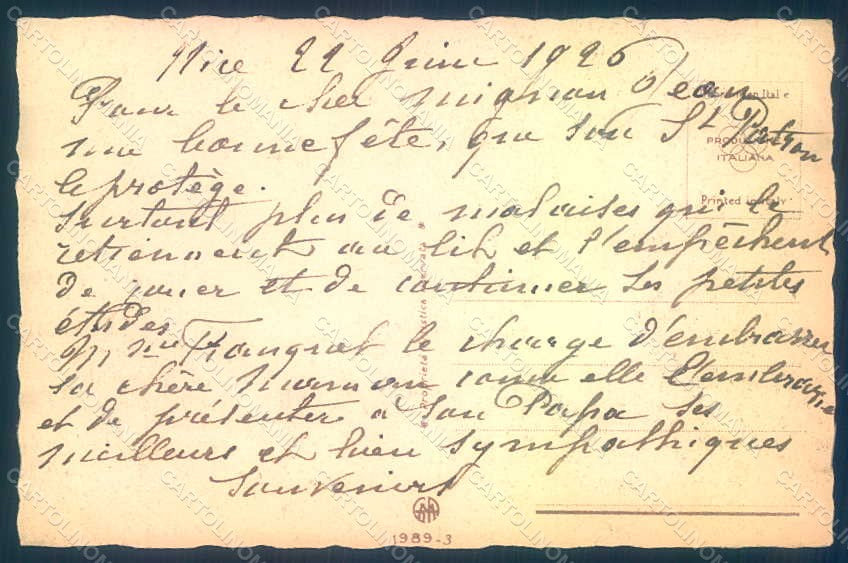 Nice 22 Juin 1926
Pour le cher mignon Jean
une bonne fête, que son St Patron
le protège.
Surtout plus de malaises qui le
retiennent au lit et l'empêchent
de jouer et de continuer ses petites
études
Mme Franquet le charge d'embrasser
sa chère maman comme elle l'embrasse
et de présenter à son Papa ses
meilleurs et bien sympathiques
souvenirs
PRODUZIONE
ITALIANA
Printed in Italy
Proprietà artistica riservata
1989-3
CARTOLINOMANIA